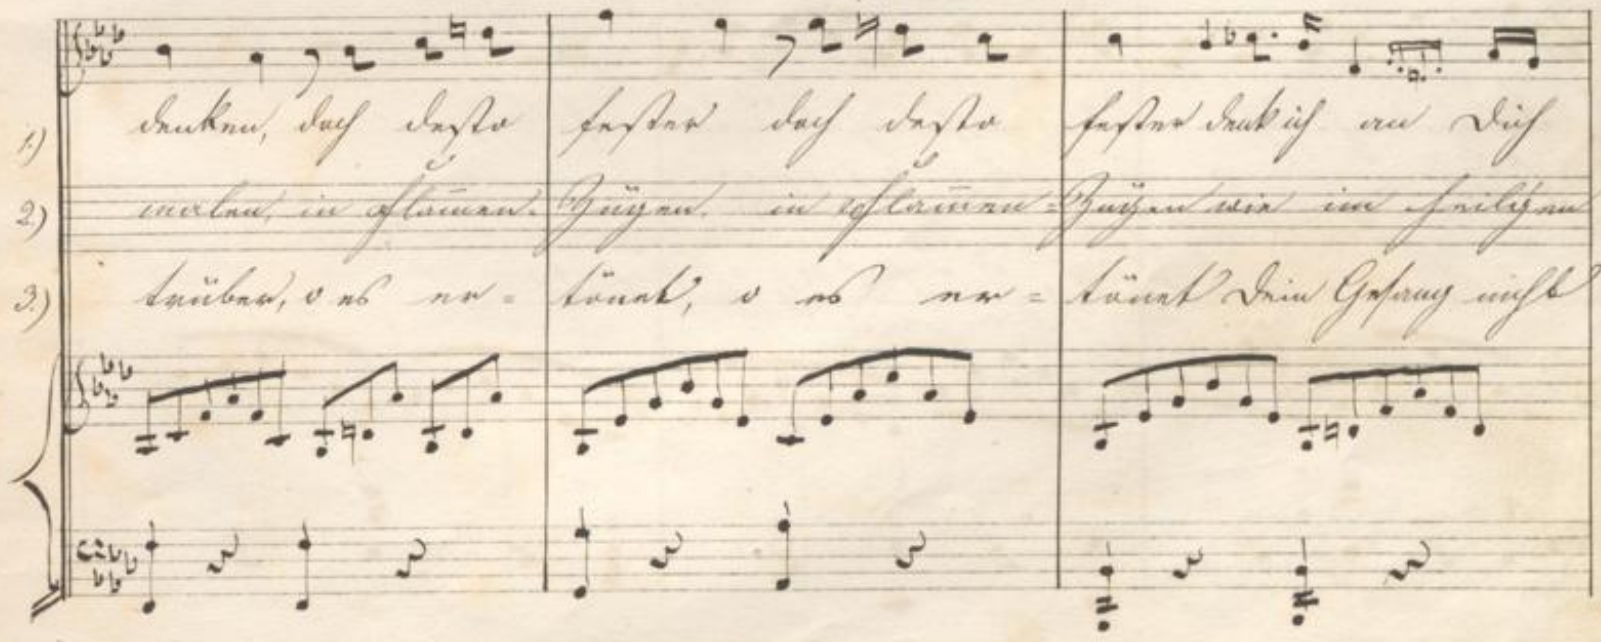 1.) denken, doch desto fester doch desto fester denk ich an Dich
2.) malen, in Flam̄en- Zügen, in Flam̄en= Zügen wie im heiligen
3.) trüber, o es er= tönet, o es er= tönet Dein Gesang nicht